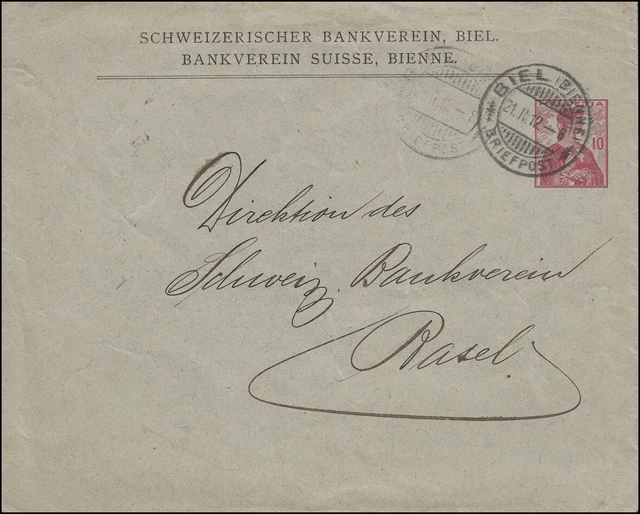 SCHWEIZERISCHER BANKVEREIN, BIEL.
BANKVEREIN SUISSE, BIENNE.
BIEL (BIENNE)
21.II.12
BRIEFPOST
10
Direktion des
Schweiz. Bankverein
Basel.